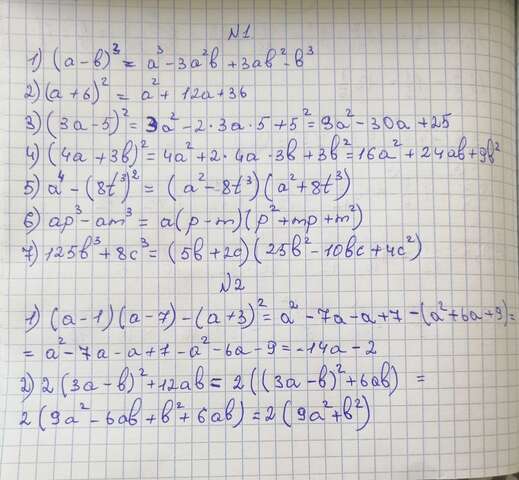 №1
1) (a-b)³ = a³-3a²b+3ab²-b³
2) (a+6)² = a²+12a+36
3) (3a-5)² = 3a²-2·3a·5+5² = 9a²-30a+25
4) (4a+3b)² = 4a²+2·4a·3b+3b² = 16a²+24ab+9b²
5) a⁴-(8t³)² = (a²-8t³)(a²+8t³)
6) ap³-am³ = a(p-m)(p²+mp+m²)
7) 125b³+8c³ = (5b+2c)(25b²-10bc+4c²)
№2
1) (a-1)(a-7)-(a+3)² = a²-7a-a+7-(a²+6a+9) =
= a²-7a-a+7-a²-6a-9 = -14a-2
2) 2(3a-b)²+12ab = 2((3a-b)²+6ab) =
2(9a²-6ab+b²+6ab) = 2(9a²+b²)